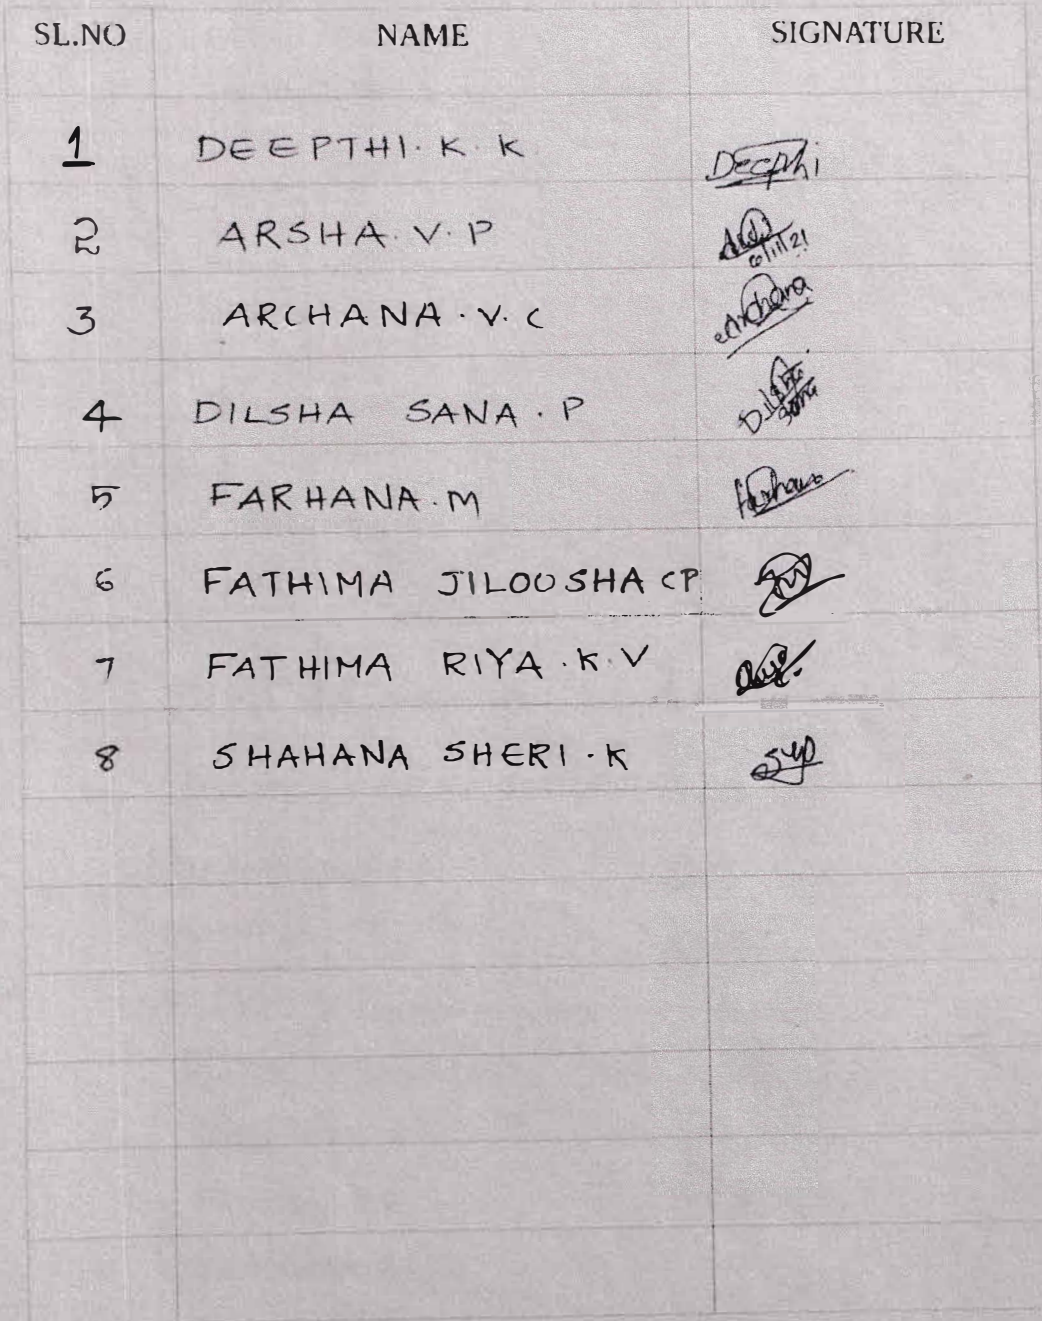 SL.NO NAME SIGNATURE
1 DEEPTHI. K. K Deepthi
2 ARSHA. V. P
6/11/21
3 ARCHANA. V. C Archana
4 DILSHA SANA. P Dilsha
Sana
5 FARHANA. M Farhana
6 FATHIMA JILOOSHA CP
7 FATHIMA RIYA. K. V
8 SHAHANA SHERI. K